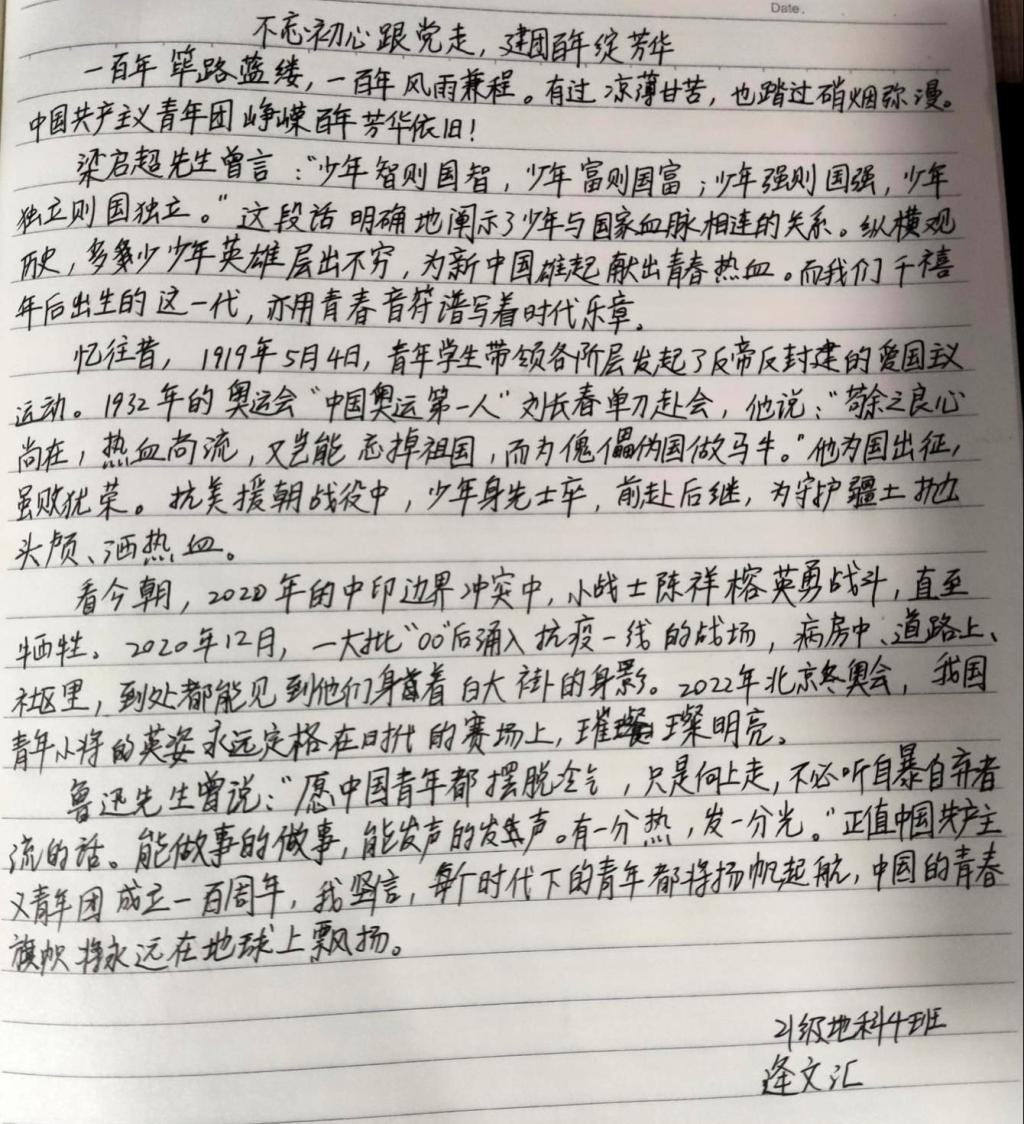 Date.
不忘初心跟党走，建团百年绽芳华
一百年 筚路蓝缕，一百年风雨兼程。有过凉薄甘苦，也踏过硝烟弥漫。
中国共产主义青年团峥嵘百年芳华依旧！
梁启超先生曾言：“少年智则国智，少年富则国富；少年强则国强，少年
独立则国独立。”这段话明确地阐示了少年与国家血脉相连的关系。纵横观
历史，多少少年英雄层出不穷，为新中国雄起献出青春热血。而我们千禧
年后出生的这一代，亦用青春音符谱写着时代乐章。
忆往昔，1919年5月4日，青年学生带领各阶层发起了反帝反封建的爱国主义
运动。1932年的奥运会“中国奥运第一人”刘长春单刀赴会，他说：“苟余之良心
尚在，热血尚流，又岂能忘掉祖国，而为傀儡伪国做马牛。”他为国出征，
虽败犹荣。抗美援朝战役中，少年身先士卒，前赴后继，为守护疆土抛
头颅、洒热血。
看今朝，2020年的中印边界冲突中，小战士陈祥榕英勇战斗，直至
牺牲。2020年12月，一大批“00”后涌入抗疫一线的战场，病房中、道路上、
社区里，到处都能见到他们身着白大褂的身影。2022年北京冬奥会，我国
青年小将的英姿永远定格在时代的赛场上，璀璨明亮。
鲁迅先生曾说：“愿中国青年都摆脱冷气，只是向上走，不必听自暴自弃者
流的话。能做事的做事，能发声的发声。有一分热，发一分光。”正值中国共产主
义青年团成立一百周年，我坚信，每个时代下的青年都将扬帆起航，中国的青春
旗帜将永远在地球上飘扬。
21级地科4班
逄文汇